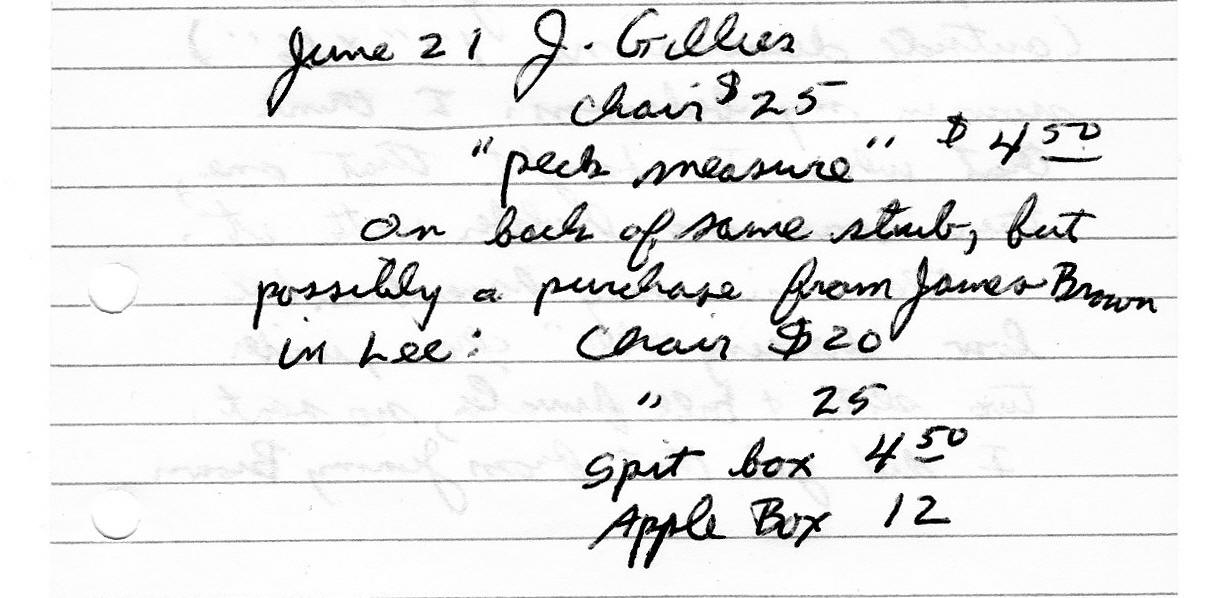 June 21 J. Gillies
Chair $25
"peck measure" $4 50
On back of same stub, but
possibly a purchase from James Brown
in Lee: Chair $20
" 25
Spit box 4 50
Apple Box 12